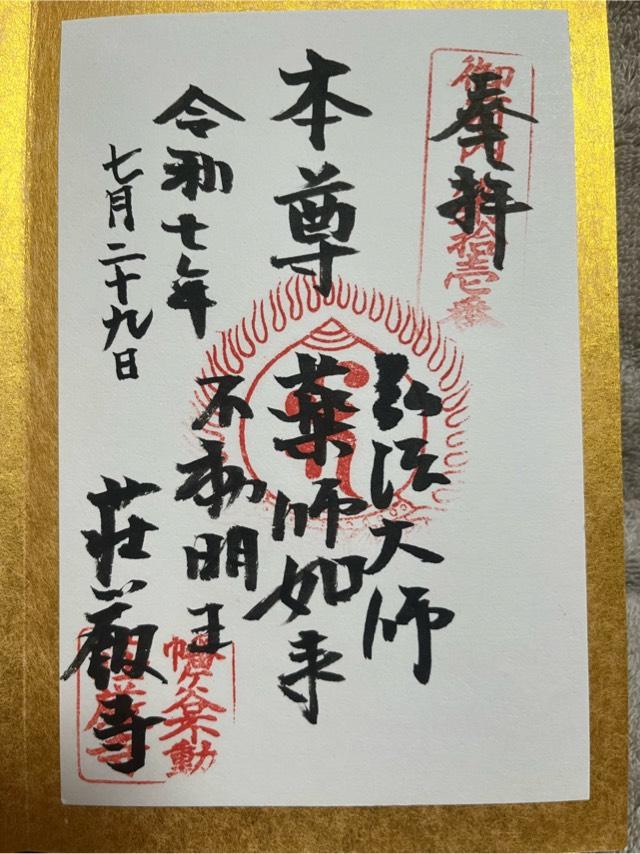 奉拝
御府内第拾壱番
本尊
弘法大師
薬師如来
不動明王
令和七年
七月二十九日
荘厳寺
幡ヶ谷不動
荘厳寺